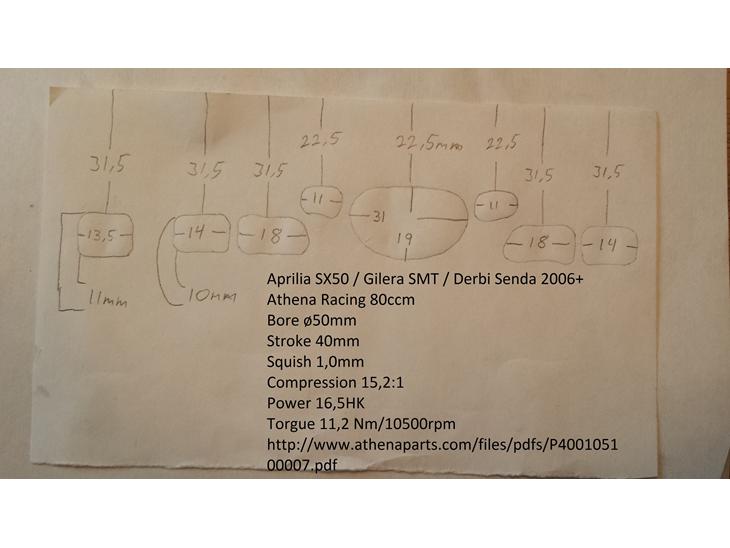 22,5 22,5mm 22,5
31,5 31,5 31,5 31,5 31,5
11 11
31
13,5 14 18 19 18 14
11mm 10mm
Aprilia SX50 / Gilera SMT / Derbi Senda 2006+
Athena Racing 80ccm
Bore ø50mm
Stroke 40mm
Squish 1,0mm
Compression 15,2:1
Power 16,5HK
Torgue 11,2 Nm/10500rpm
http://www.athenaparts.com/files/pdfs/P4001051
00007.pdf